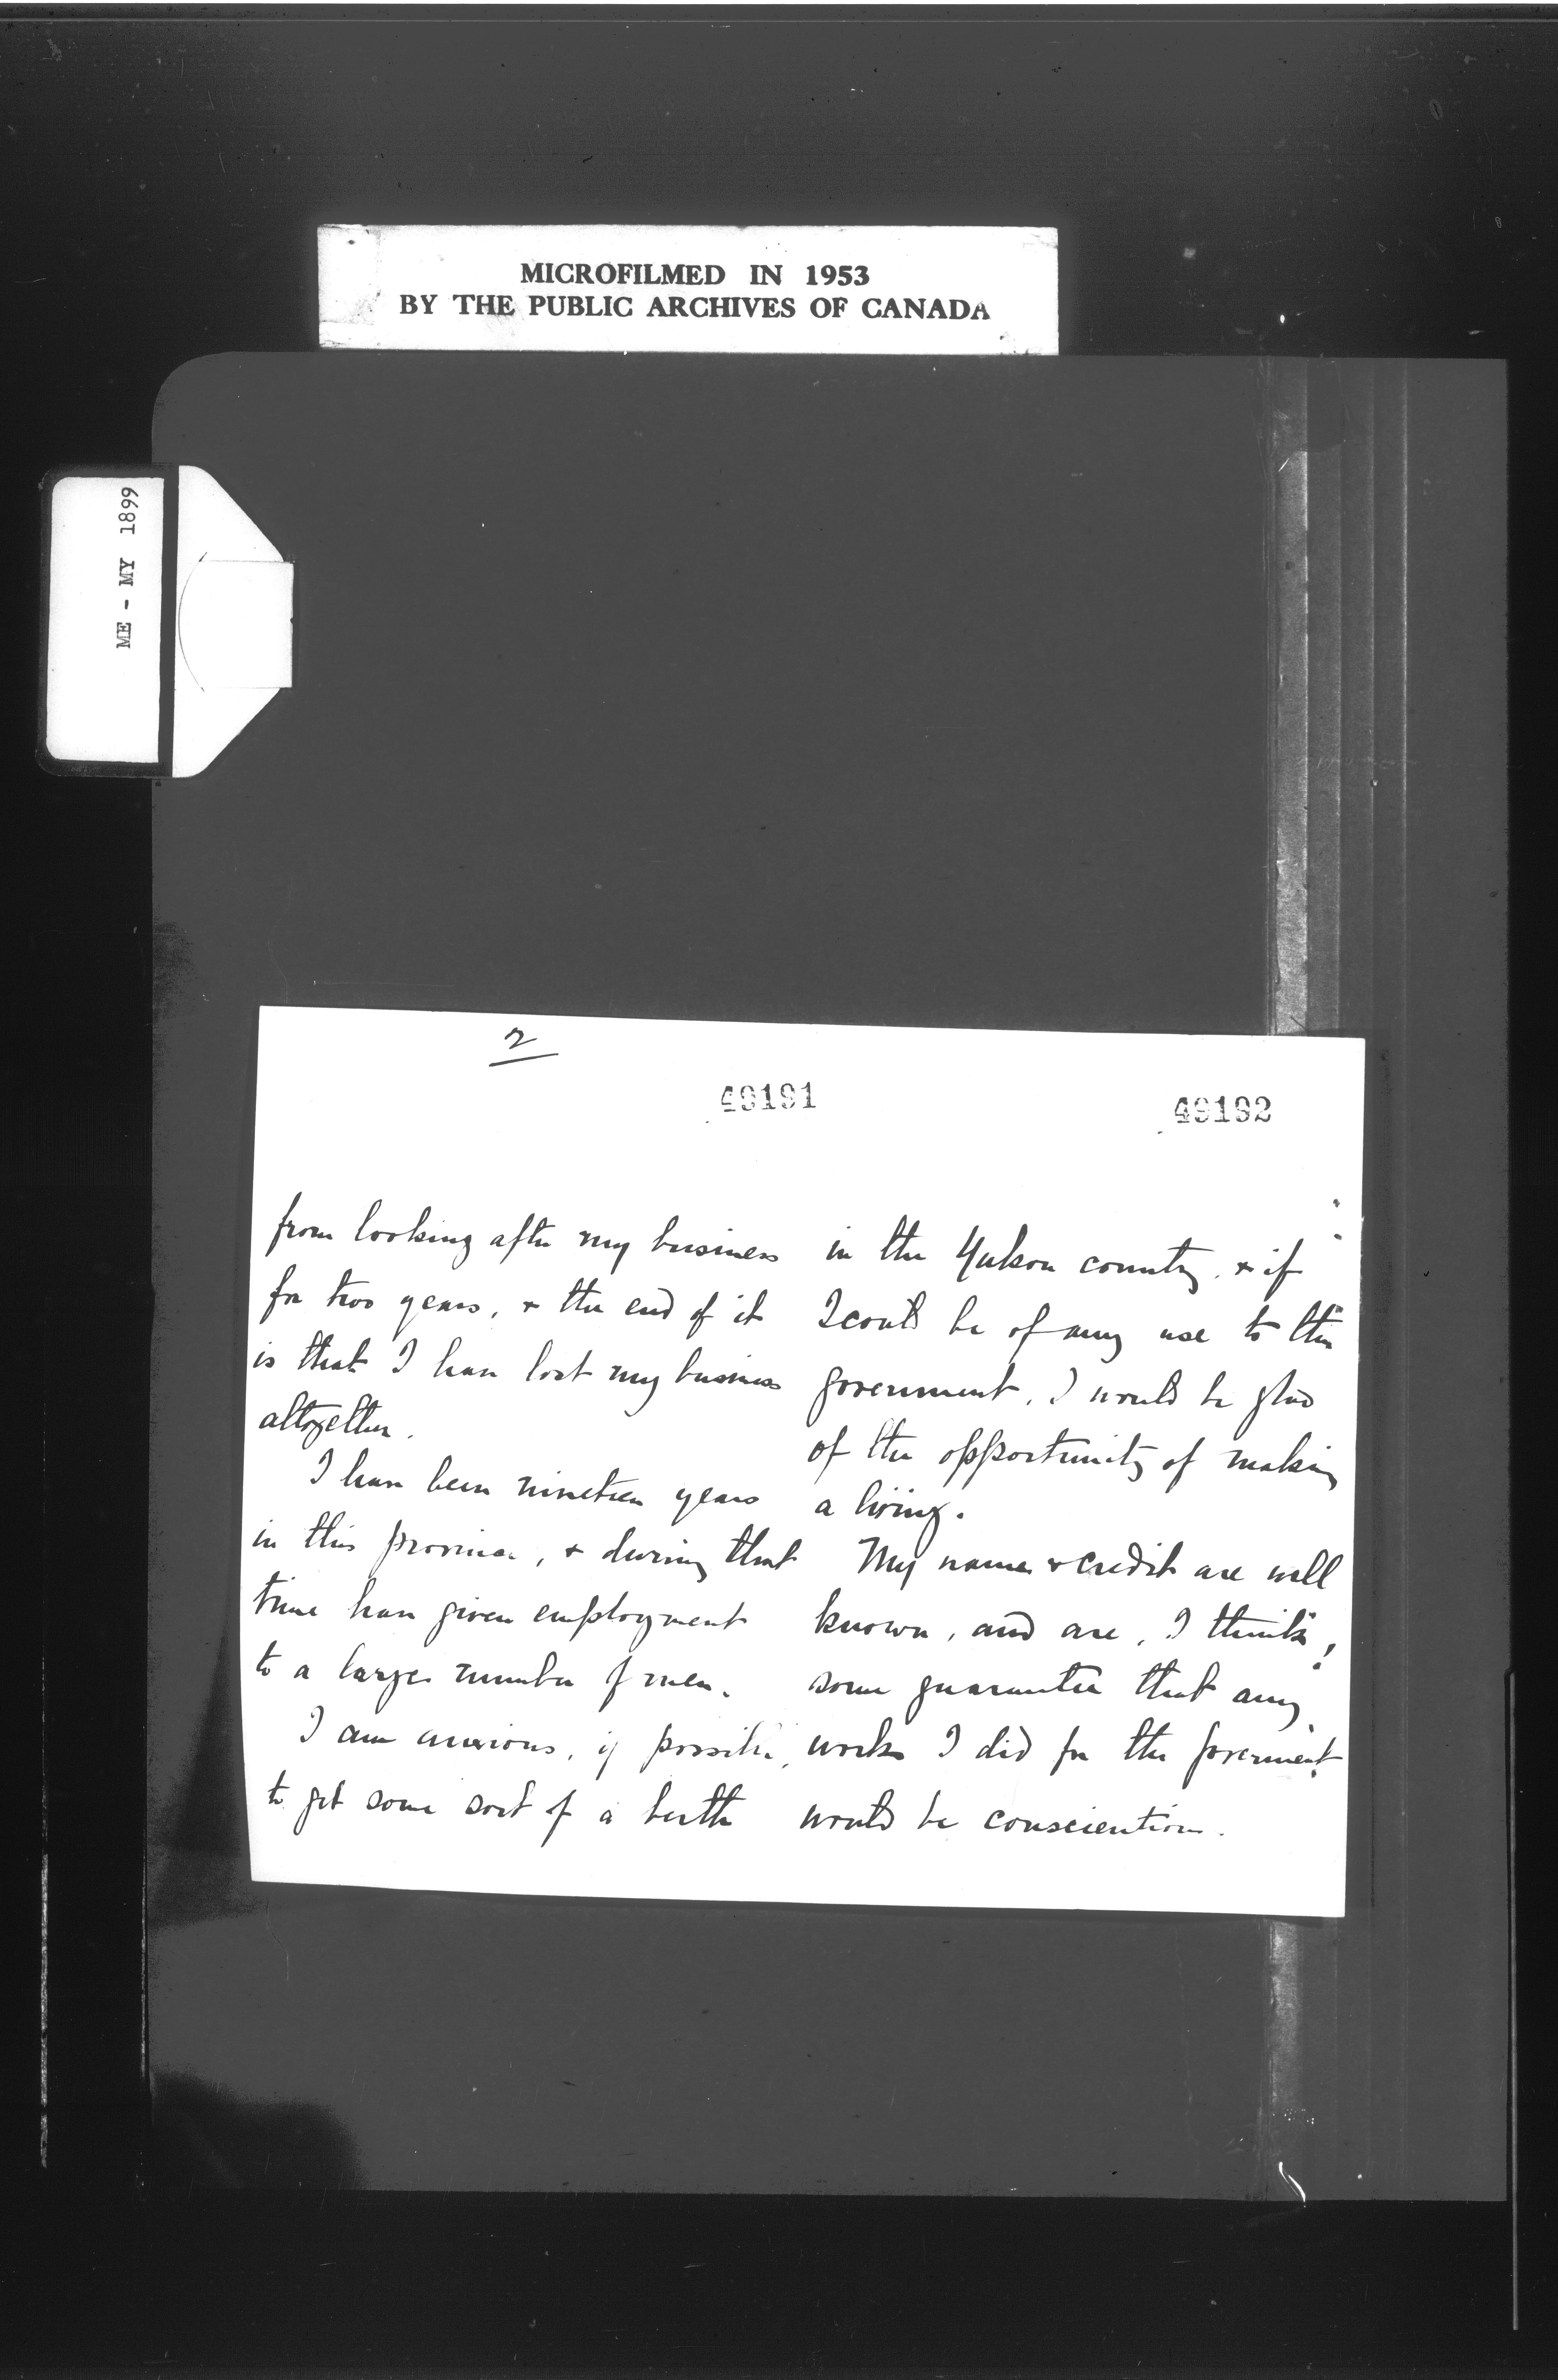 MICROFILMED IN 1953
BY THE PUBLIC ARCHIVES OF CANADA
ME - MY 1899
2
49191
from looking after my business
for two years, & the end of it
is that I have lost my business
altogether.
I have been nineteen years
in this province, & during that
time have given employment
to a large number of men.
I am anxious, if possible,
to get some sort of a berth
49192
in the Yukon country, & if
I could be of any use to the
government, I would be glad
of the opportunity of making
a living.
My name & credit are well
known, and are, I think,
some guarantee that any
works I did for the government
would be conscientious.